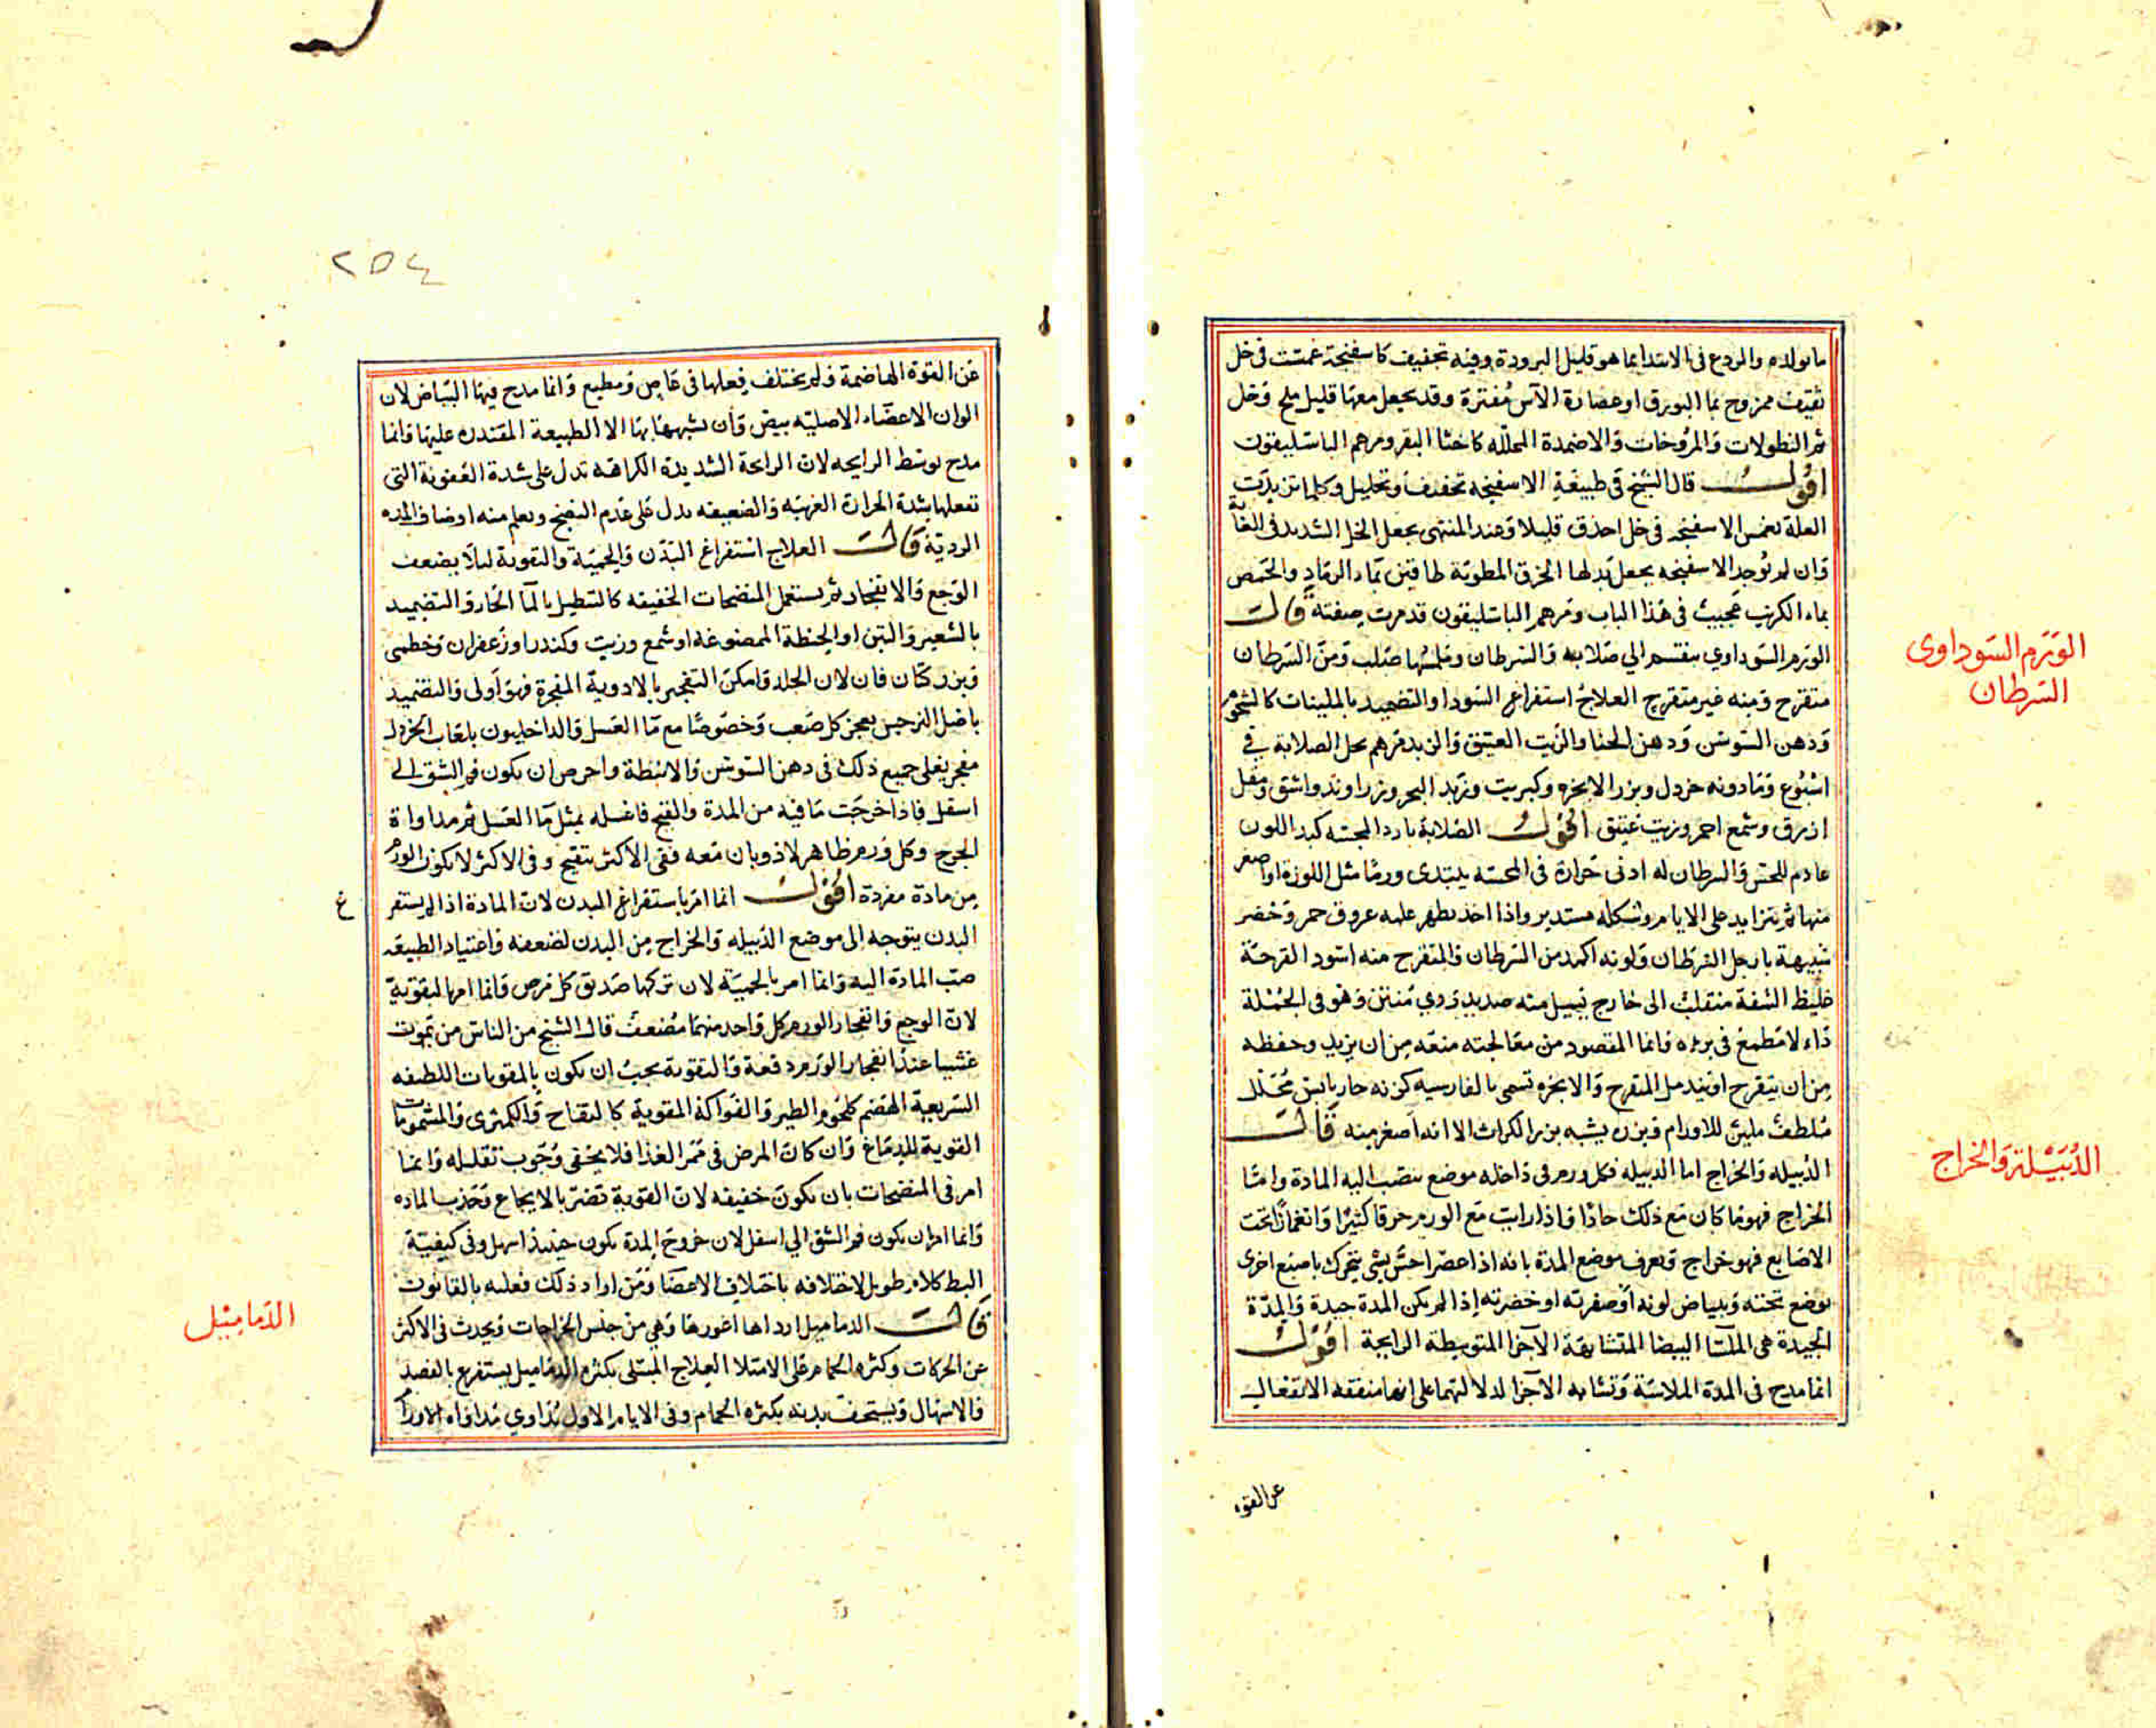 ما يولده والردع في الابتدا بما هو قليل البرودة وفيه تجفيف كاسفنجة غمست في خل
ثقيف ممزوج بما البورق او عصارة الآس مفترة وقد يجعل معها قليل ملح وخل
ثم النطولات والمروخات والاضمدة المحلله كاخثا البقر ومرهم الباسليقون
اقول قال الشيخ في طبيعة الاسفنجه تجفيف وتحليل وكلما تزيدت
العلة تغمس الاسفنجه في خل احذق قليلا وعند المنتهى يجعل الخل الشديد في الغاية
وان لم توجد الاسفنجه يجعل بدلها الخرق المطوية طاقين بماء الرماد والحمص
بماء الكرنب عجيب في هذا الباب ومرهم الباسليقون قد مرت صفته قال
الورم السوداوي ينقسم الي صلابه والسرطان ومن السرطان
متقرح ومنه غير متقرح العلاج استفراغ السودا والتضميد بالملينات كالشحوم
ودهن السوسن ودهن الحنا والزيت العتيق والزبد مرهم يحل الصلابة في
اسبوع ومادونه خردل وبزر الانجره وكبريت وزبد البحر وزراوند واشق ومقل
ازرق وشمع احمر وزيت عتيق اقول الصلابة بارد المجسه كمد اللون
عادم للحس والسرطان له ادنى حرارة في المجسه يبتدى ورما مثل اللوزة او اصغر
منها ثم يتزايد على الايام وشكله مستدير واذا اخذ يظهر عليه عروق حمر وخضر
شبيهة بارجل السرطان ولونه اكمد من السرطان والمتقرح منه اسود القرحة
غليظ الشفة منقلب الى خارج يسيل منه صديد ردي منتن وهو في الجملة
داء لا مطمع في برئه وانما المقصود من معالجته منعه من ان يزيد وحفظه
من ان يتقرح او يندمل المتقرح والانجره تسمى بالفارسيه كزنه حار يابس محلل
ملطف ملين للاورام وبزره يشبه بزر الكراث الا انه اصغر منه قال
الدبيله والخراج اما الدبيله فكل ورم في داخله موضع ينصب اليه المادة واما
الخراج فهو ما كان مع ذلك حادا واذا رايت مع الورم حرقا كثيرا وانغمازا تحت
الاصابع فهو خراج ويعرف موضع المدة بانه اذا عصر احس بشي يتحرك باصبع اخرى
توضع تحته وببياض لونه او صفرته او خضرته إذا لم يكن المدة جيدة والمدة
الجيدة هى الملسا البيضا المتشابهة الاجزا المتوسطة الرايحة اقول
انما مدح في المدة الملاسة وتشابه الاجزا لدلالتهما على انها منفعله الانفعال
عن القوه
الورم السوداوى
السرطان
الدبيلة والخراج
٢٥٤
عن القوة الهاضمة ولم يختلف فعلها في عاص ومطيع وانما مدح فيها البياض لان
الوان الاعضاء الاصليه بيض وان يشبهها بها الا الطبيعة المقتدره عليها وانما
مدح توسط الرايحه لان الرايحة الشديدة الكراهه تدل على شدة العفونة التى
تفعلها بشدة الحرارة الغريبه والضعيفه تدل على عدم النضج ويعلم منه اوصاف المده
الردية قال العلاج استفراغ البدن والحمية والتقوية ليلا يضعف
الوجع والانفجار ثم يستعمل المنضجات الخفيفه كالتنطيل بالما الحار والتضميد
بالشعير والتين او الحنطة الممضوغة او شمع وزيت وكندر او زعفران وخطمى
وبزر كتان فان لان الجلد وامكن التفجير بالادوية المفجرة فهو أولى والتضميد
باصل النرجس يعجز كل صعب وخصوصا مع ما العسل والداخليون بلعاب الخردل
مفجر يغلى جميع ذلك في دهن السوسن والابطة واحرص ان يكون فم الشق الى
اسفل فاذا خرجت ما فيه من المدة والقيح فاغسله بمثل ما العسل ثم مداواة
الجرح وكل ورم ظاهر لاذوبان معه ففى الاكثر يتقيح وفي الاكثر لا يكون الورم
من مادة مفردة اقول انما امر باستفراغ البدن لان المادة اذا لم يستفر
غ
البدن يتوجه الى موضع الدبيله والخراج من البدن لضعفه واعتياد الطبيعه
صب المادة اليه وانما امر بالحمية لان تركها صديق كل مرض وانما امر بالتقوية
لان الوجع وانفجار الورم كل واحد منهما مضعف قال الشيخ من الناس من يموت
غشيا عند انفجار الورم دفعة والتقوية يجب ان يكون بالمقويات اللطيفه
السريعة الهضم كلحوم الطير والفواكه المقوية كالتفاح والكمثرى والمشمومات
القوية للدماغ وان كان المرض في ممر الغذا فلا يخفى وجوب تقليله وانما
امر في المنضجات بان يكون خفيفه لان القوية تضر بالايجاع وتجذب الماده
وانما امر ان يكون فم الشق الي اسفل لان خروج المدة يكون حينيذ اسهل وفي كيفية
البط كلام طويل لاختلافه باختلاف الاعضا ومن اراد ذلك فعليه بالقانون
قال الدماميل ارداها اغورها وهي من جنس الخراجات ويحدث في الاكثر
عن الحركات وكثره الحمام على الامتلا العلاج المبتلى بكثره الدماميل يستفرغ بالفصد
والاسهال ويستحصف بدنه بكثره الحمام وفي الايام الاول يداوي مداواه الاورام
الدماميل